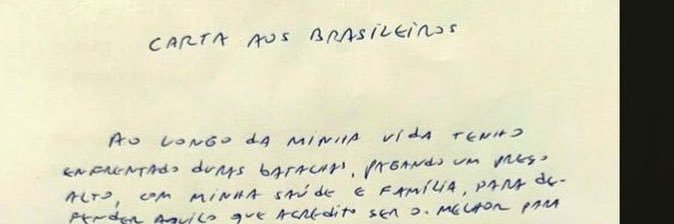 CARTA AOS BRASILEIROS
AO LONGO DA MINHA VIDA TENHO
ENFRENTADO DURAS BATALHAS, PAGANDO UM PREÇO
ALTO, COM MINHA SAÚDE E FAMÍLIA, PARA DE-
FENDER AQUILO QUE ACREDITO SER O MELHOR PARA